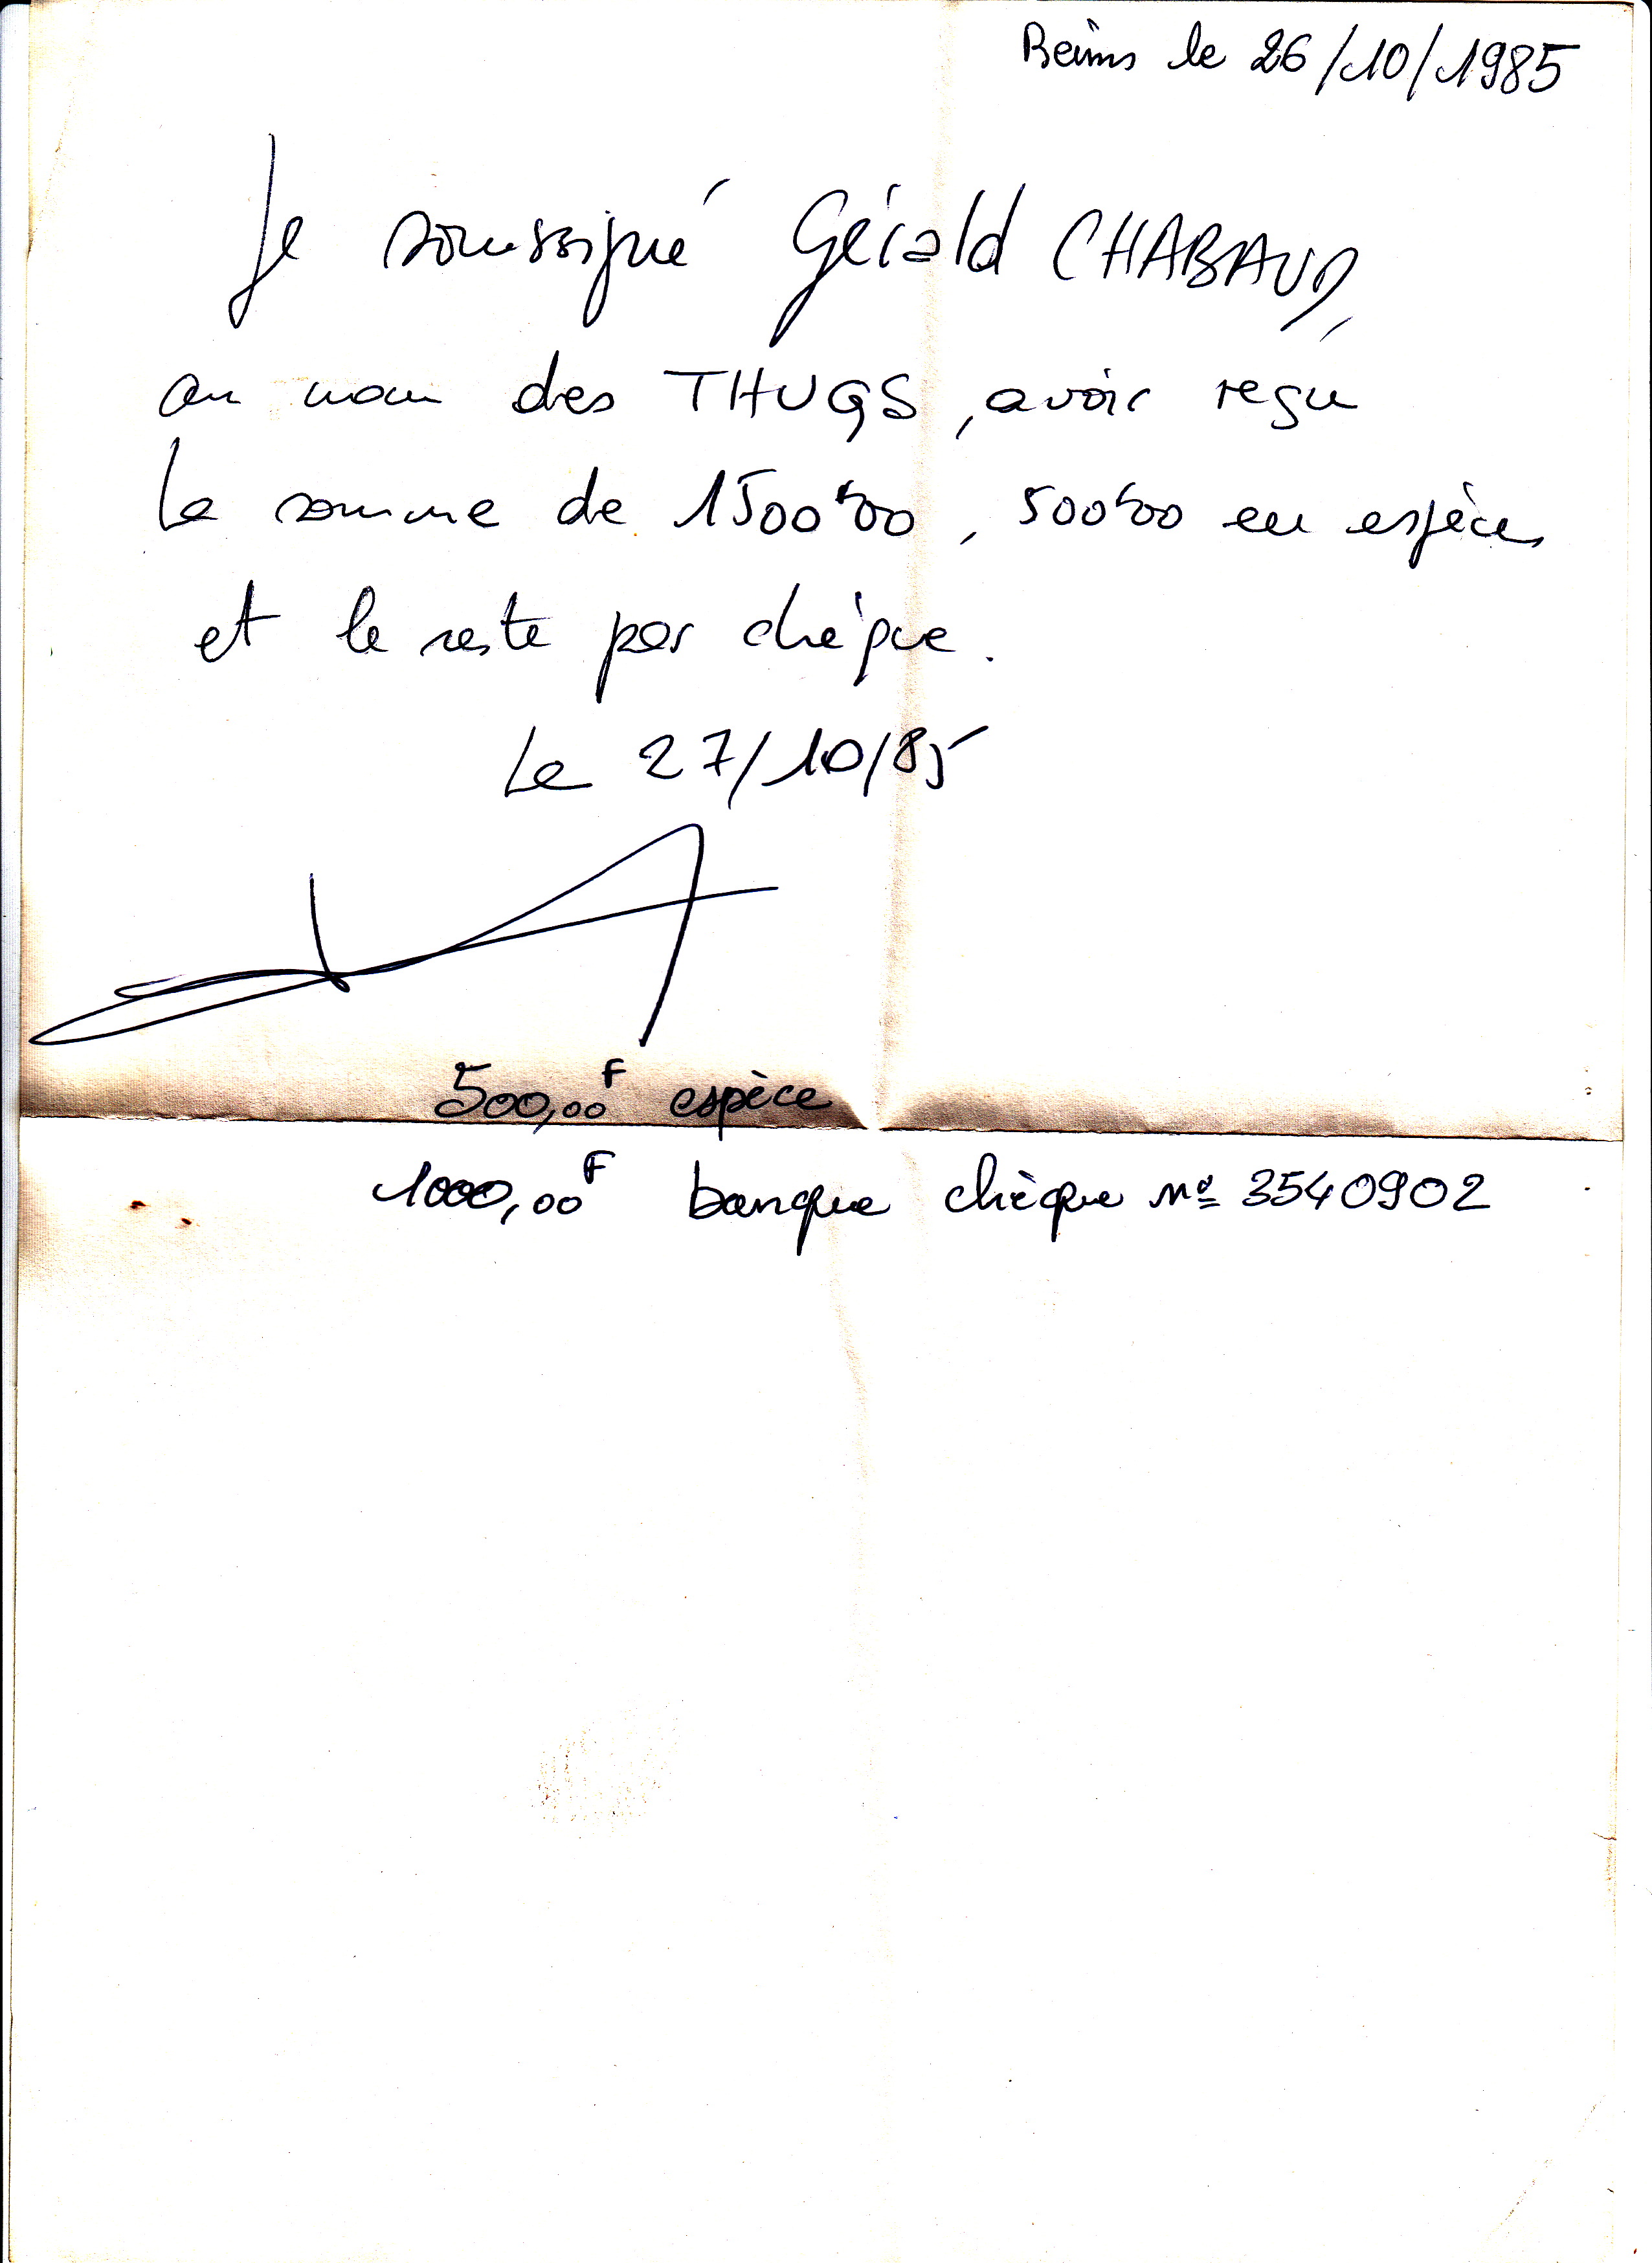 Reims le 26/10/1985
Je soussigné Gérald CHABAUD,
au nom des THUGS, avoir reçu
la somme de 1500F00, 500F00 en espèces
et le reste par chèque.
Le 27/10/85
500,00F espèce
1000,00F banque chèque nº 3540902